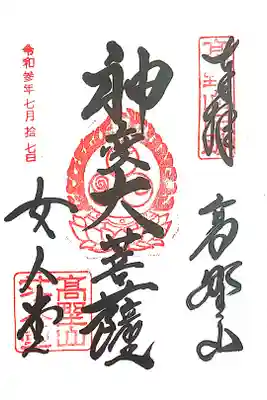 奉拝
高野山
神変大菩薩
女人堂
令和参年七月拾七日
高野山